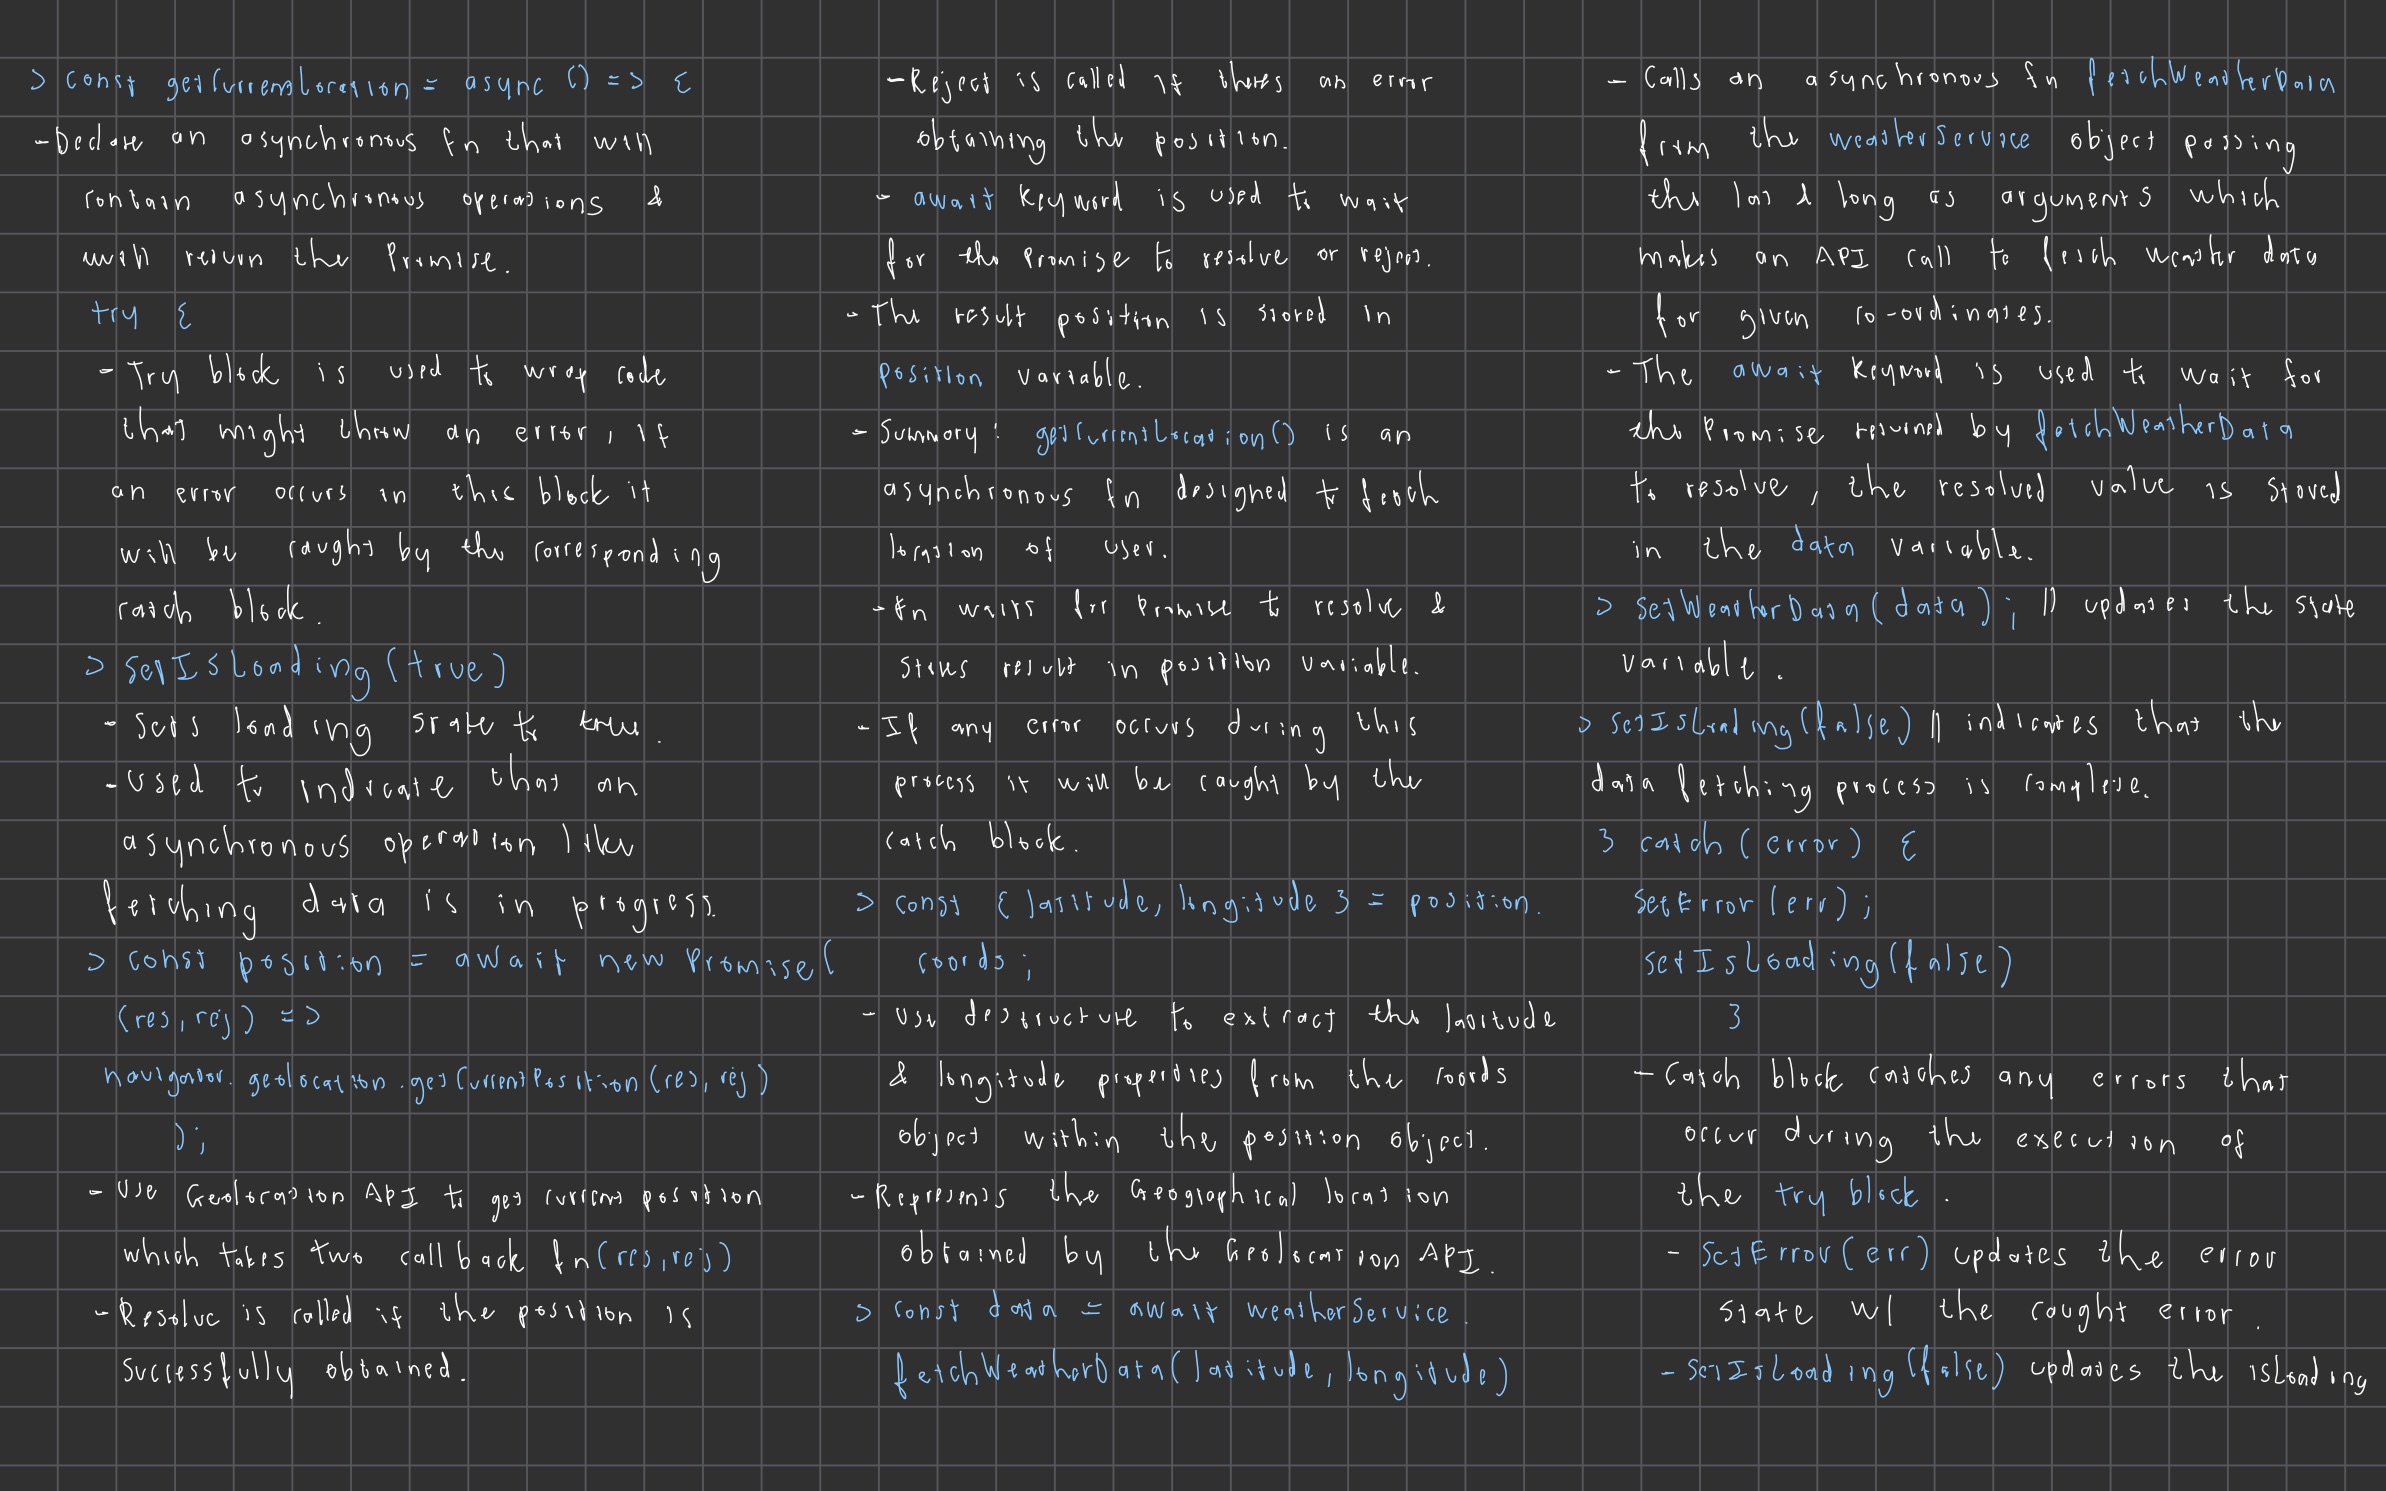 > const getCurrentLocation = async () => {
- Declare an asynchronous fn that will
contain asynchronous operations &
will return the Promise.
try {
- Try block is used to wrap code
that might throw an error, if
an error occurs in this block it
will be caught by the corresponding
catch block.
> setIsLoading(true)
- Sets loading state to true.
- Used to indicate that an
asynchronous operation like
fetching data is in progress.
> const position = await new Promise(
(res, rej) =>
navigator.geolocation.getCurrentPosition(res, rej)
);
- Use Geolocation API to get current position
which takes two callback fn(res, rej)
- Resolve is called if the position is
successfully obtained.
- Reject is called if theres an error
obtaining the position.
- await keyword is used to wait
for the Promise to resolve or reject.
- The result position is stored in
position variable.
- Summary: getCurrentLocation() is an
asynchronous fn designed to fetch
location of user.
- Fn waits for Promise to resolve &
stores result in position variable.
- If any error occurs during this
process it will be caught by the
catch block.
> const { latitude, longitude } = position.
coords;
- Use destructure to extract the latitude
& longitude properties from the coords
object within the position object.
- Represents the Geographical location
obtained by the Geolocation API.
> const data = await weatherService.
fetchWeatherData(latitude, longitude)
- Calls an asynchronous fn fetchWeatherData
from the weatherService object passing
the lat & long as arguments which
makes an API call to fetch weather data
for given co-ordinates.
- The await keyword is used to wait for
the Promise returned by fetchWeatherData
to resolve, the resolved value is stored
in the data variable.
> setWeatherData(data); // updates the state
variable.
> setIsLoading(false) // indicates that the
data fetching process is complete.
} catch (error) {
setError(err);
setIsLoading(false)
}
- Catch block catches any errors that
occur during the execution of
the try block.
- setError(err) updates the error
state w/ the caught error.
- setIsLoading(false) updates the isLoading